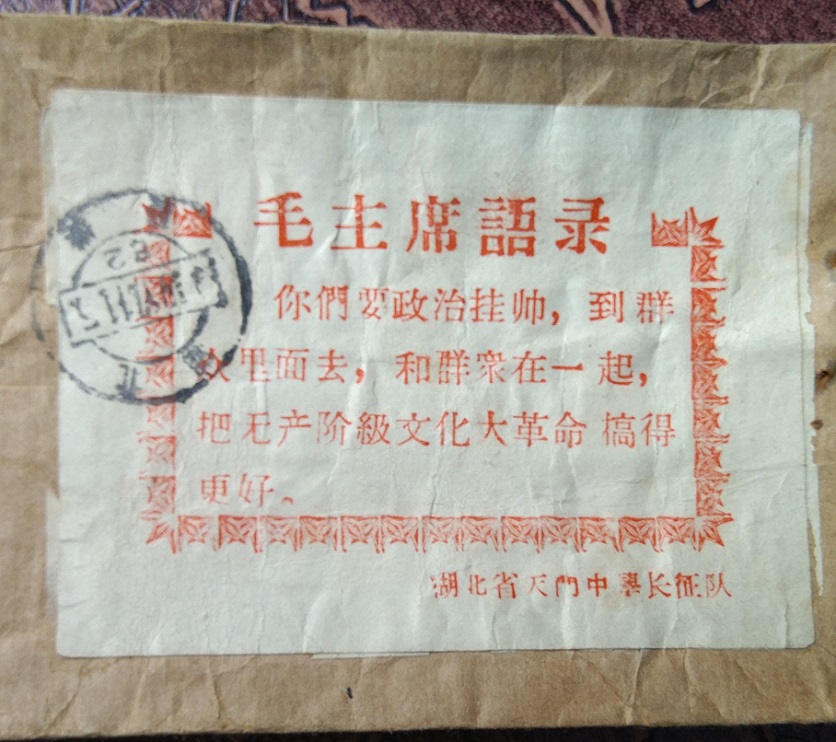 毛主席語录
你們要政治挂帅，到群
众里面去，和群衆在一起，
把无产阶級文化大革命搞得
更好。
湖北省天門中學长征队